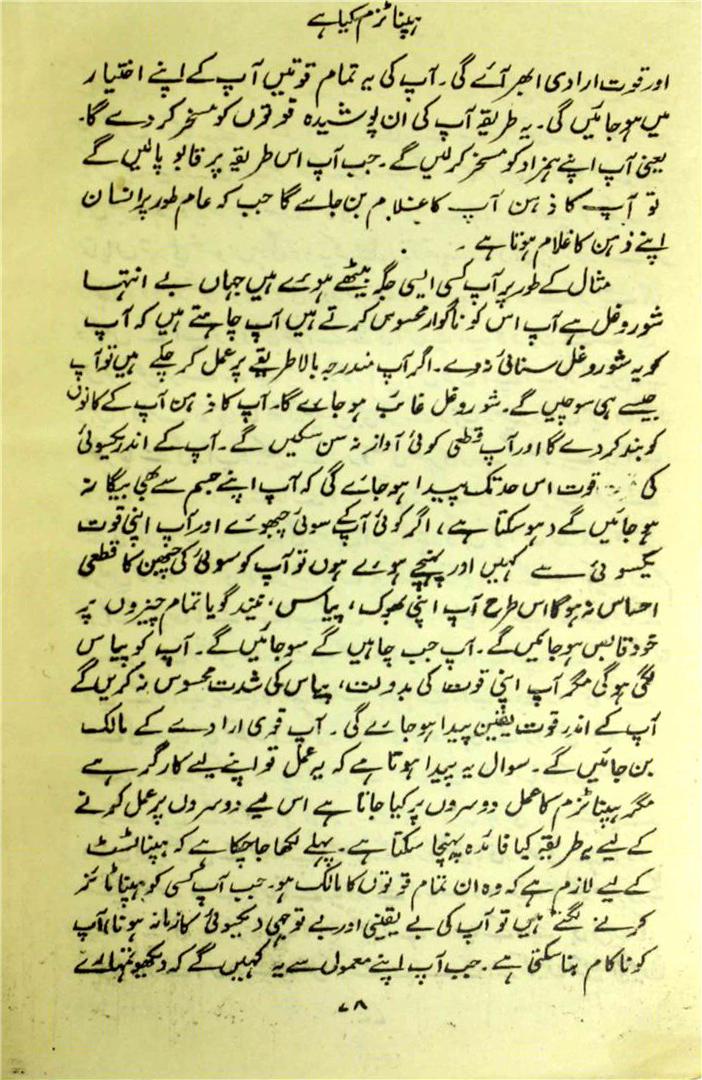 ہپناٹزم کیا ہے
اور قوت ارادی ابھر آئے گی۔ آپ کی یہ تمام قوتیں آپ کے اپنے اختیار
میں ہو جائیں گی۔ یہ طریقہ آپ کی ان پوشیدہ قوتوں کو مسخر کر دے گا۔
یعنی آپ اپنے ہمزاد کو مسخر کر لیں گے۔ جب آپ اس طریقہ پر قابو پالیں گے
تو آپ کا ذہن آپ کا غلام بن جائے گا جب کہ عام طور پر انسان
اپنے ذہن کا غلام ہوتا ہے۔
مثال کے طور پر آپ کسی ایسی جگہ بیٹھے ہوئے ہیں جہاں بے انتہا
شور و غل ہے آپ اس کو ناگوار محسوس کرتے ہیں آپ چاہتے ہیں کہ آپ
کو یہ شور و غل سنائی نہ دے۔ اگر آپ مندرجہ بالا طریقے پر عمل کر چکے ہیں تو آپ
جیسے ہی سوچیں گے۔ شور و غل غائب ہو جائے گا۔ آپ کا ذہن آپ کے کانوں
کو بند کر دے گا اور آپ قطعی کوئی آواز نہ سن سکیں گے۔ آپ کے اندر یکسوئی
کی قوت اس حد تک پیدا ہو جائے گی کہ آپ اپنے جسم سے بھی بیگانہ
ہو جائیں گے۔ ہو سکتا ہے، اگر کوئی آپ کے سوئی چبھوئے اور آپ اپنی قوت
یکسوئی سے کہیں اور پہنچے ہوئے ہوں تو آپ کو سوئی کی چبھن کا قطعی
احساس نہ ہوگا اس طرح آپ اپنی بھوک، پیاس، نیند گویا تمام چیزوں پر
خود قابض ہو جائیں گے۔ آپ جب چاہیں گے سو جائیں گے۔ آپ کو پیاس
لگی ہوگی مگر آپ اپنی قوت کی بدولت، پیاس کی شدت محسوس نہ کریں گے
آپ کے اندر قوت یقین پیدا ہو جائے گی۔ آپ قوی ارادے کے مالک
بن جائیں گے۔ سوال یہ پیدا ہوتا ہے کہ یہ عمل تو اپنے لیے کارگر ہے
مگر ہپناٹزم کا عمل دوسروں پر کیا جاتا ہے اس لیے دوسروں پر عمل کرنے
کے لیے یہ طریقہ کیا فائدہ پہنچا سکتا ہے۔ پہلے لکھا جا چکا ہے کہ ہپناٹسٹ
کے لیے لازم ہے کہ وہ ان تمام قوتوں کا مالک ہو۔ جب آپ کسی کو ہپناٹائز
کرنے لگتے ہیں تو آپ کی بے یقینی اور بے توجہی (یکسوئی کا زمانہ ہونا) آپ
کو ناکام بنا سکتی ہے۔ جب آپ اپنے معمول سے یہ کہیں گے کہ دیکھو تمہارے
۷۸